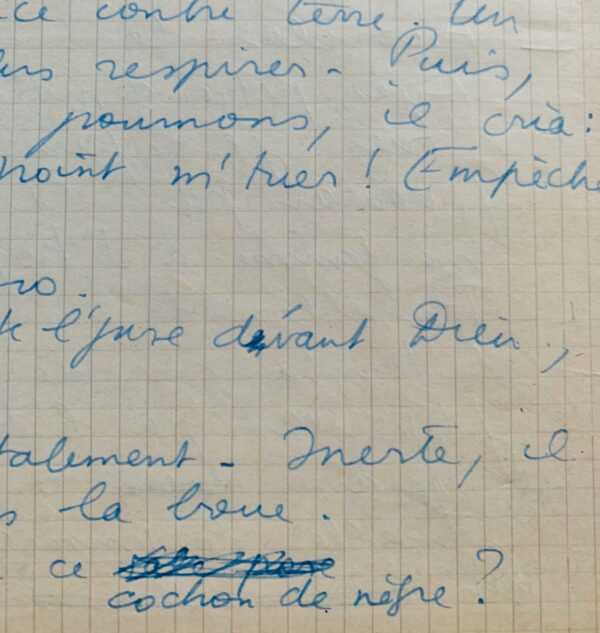 ce contre terre. Un
respirer - Puis,
poumons, il cria :
point m'tuer ! Empêche
ro.
l'jure devant Dieu ;
talement - Inerte, il
la boue.
ce
cochon de nègre ?